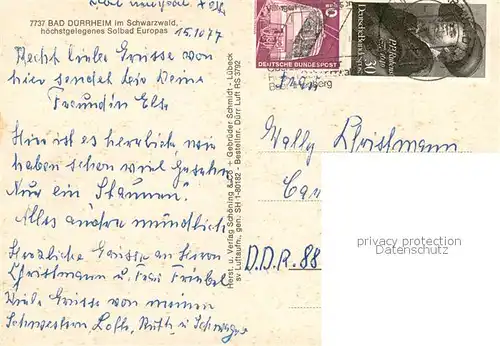 7737 BAD DÜRRHEIM im Schwarzwald,
höchstgelegenes Solbad Europas
15.10.77
Recht liebe Grüsse von
hier sendet dir Deine
Freundin Else
Hier ist es herrlich wir
haben schon viel Gesehen
Nur ein Staunen.
Alles andere mündlich.
Herzliche Grüsse an Herrn
Christmann u. Frau Friebel
Viele Grüsse von meinen
Schwestern Ruth u
Herst. u. Verlag Schöning & Co + Gebrüder Schmidt · Lübeck
sv Luftaufn., gen: SH 1-80182 - Bestellnr. Dürr Luft RS 3792
DEUTSCHE BUNDESPOST
Deutsche Bundespost
30
Wally Christmann
D.D.R. 88
privacy protection
Datenschutz